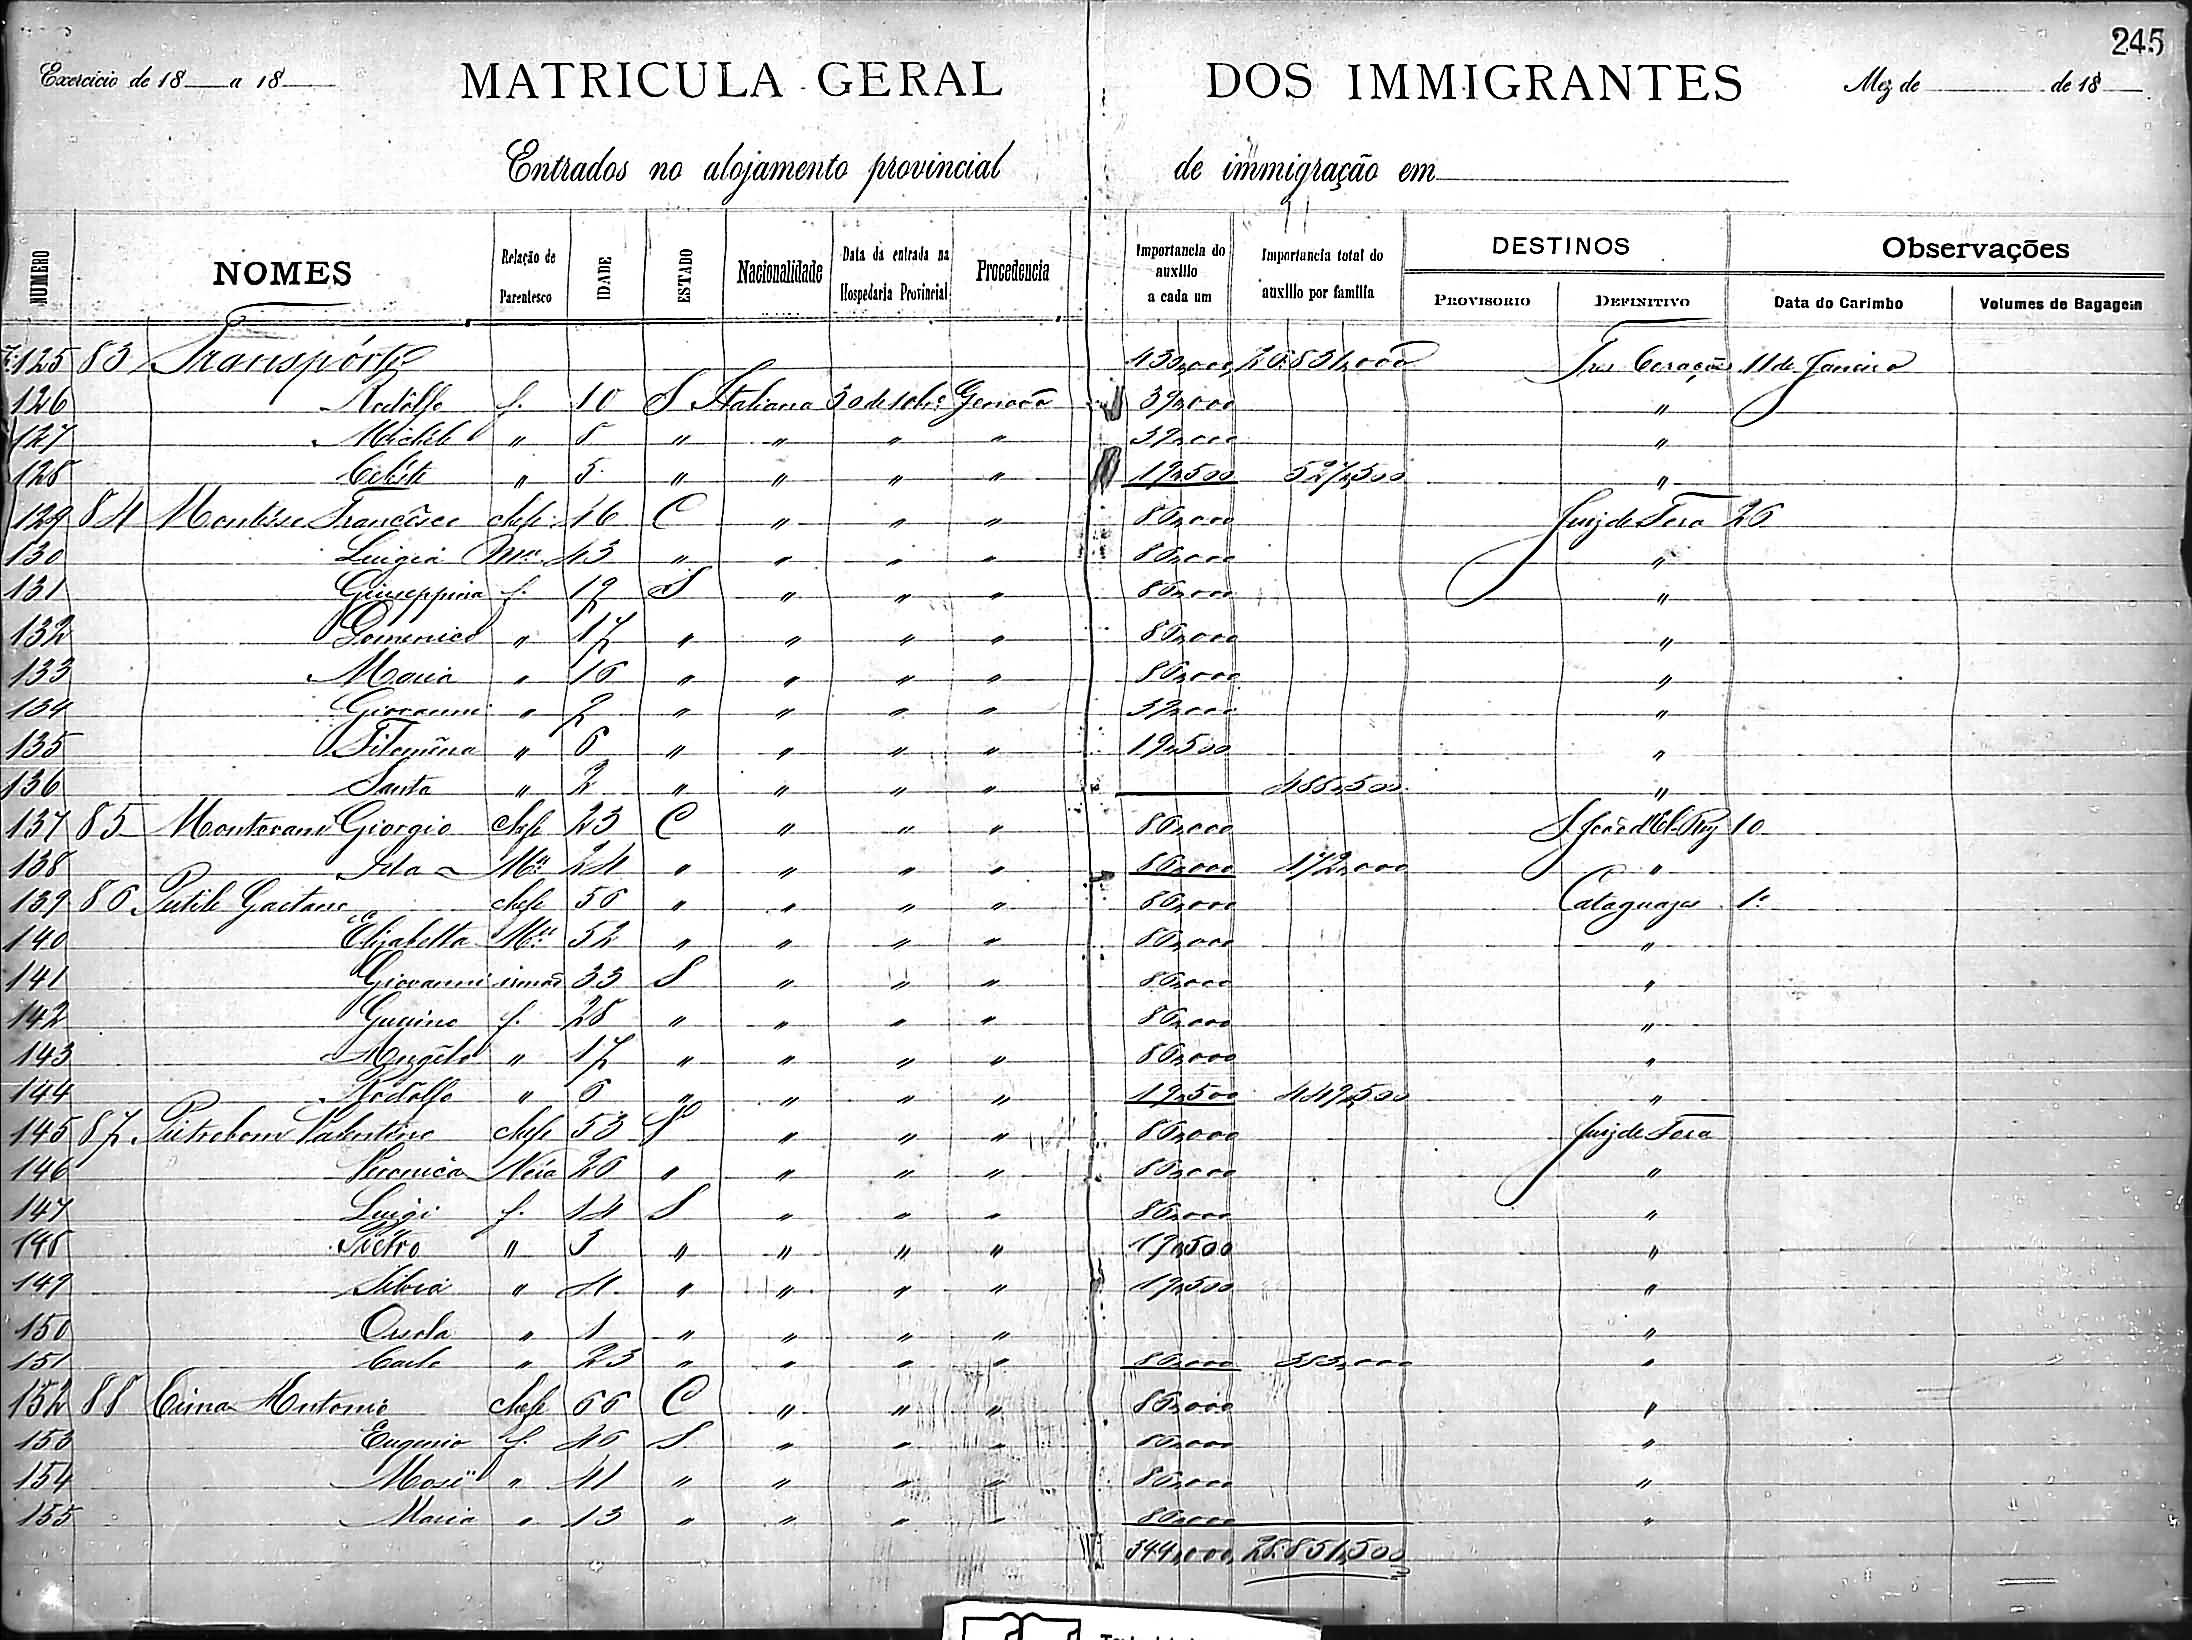 245
Exercicio de 18 a 18 MATRICULA GERAL DOS IMMIGRANTES Mez de de 18
Entrados no alojamento provincial de immigração em
NUMERO NOMES Relação de Parentesco IDADE ESTADO Nacionalidade Data da entrada na Hospedaria Provincial Procedencia Importancia do auxilio a cada um Importancia total do auxilio por familia DESTINOS PROVISORIO DEFINITIVO Observações Data do Carimbo Volumes de Bagagem
125 83 Transpórte 430,000 Tres Corações 11 de Janeiro
126 Rodolfo f. 10 S Italiana 30 de Genova 39,000 "
127 Michele " 8 " " " " 39,000 "
128 Celéste " 5 " " " " 19,500 527,500 "
129 84 Francesco chefe 46 C " " " 86,000 Juiz de Fora 26
130 Luigia Mer 43 " " " " 86,000 "
131 Giuseppina f. 19 S " " " 86,000 "
132 Domenico " 17 " " " " 86,000 "
133 Maria " 16 " " " " 86,000 "
134 Giovanni " " " " " 39,000 "
135 Filoména " 6 " " " " 19,500 "
136 Santa " 2 " " " " 488,500 "
137 85 Montovani Giorgio Chefe 23 C " " " 86,000 S. João d'El-Rey 10
138 Ida Mer 24 " " " " 86,000 172,000 "
139 86 Gaetano chefe 56 " " " " 86,000 Cataguazes 1º
140 Elisabetta Mer 52 " " " " 86,000 "
141 Giovanni irmão 33 S " " " 86,000 "
142 f. 28 " " " " 86,000 "
143 Angélo " 17 " " " " 86,000 "
144 Rodólfo " 6 " " " " 19,500 449,500 "
145 87 Pietrobom Valentino chefe 53 " " " 86,000 Juiz de Fora
146 Veronica 26 " " " " 86,000 "
147 Luigi f. 14 S " " " 86,000 "
148 Pietro " 3 " " " " 19,500 "
149 Silvia " 4 " " " " 19,500 "
150 Orsola " 1 " " " " "
151 Carlo " 23 " " " " 86,000 383,000 "
152 88 Cima Antonio chefe 66 C " " " 86,000 "
153 Eugenio f. 46 S " " " 86,000 "
154 Mosè " 41 " " " " 86,000 "
155 Maria " 13 " " " " 86,000 "
344,000 28.851,500